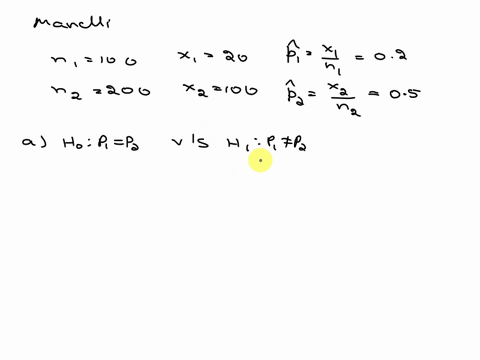 n₁ = 100 x₁ = 20 p̂₁ = x₁/n₁ = 0.2
n₂ = 200 x₂ = 100 p̂₂ = x₂/n₂ = 0.5
a) H₀ : P₁ = P₂ v/s H₁ : P₁ ≠ P₂